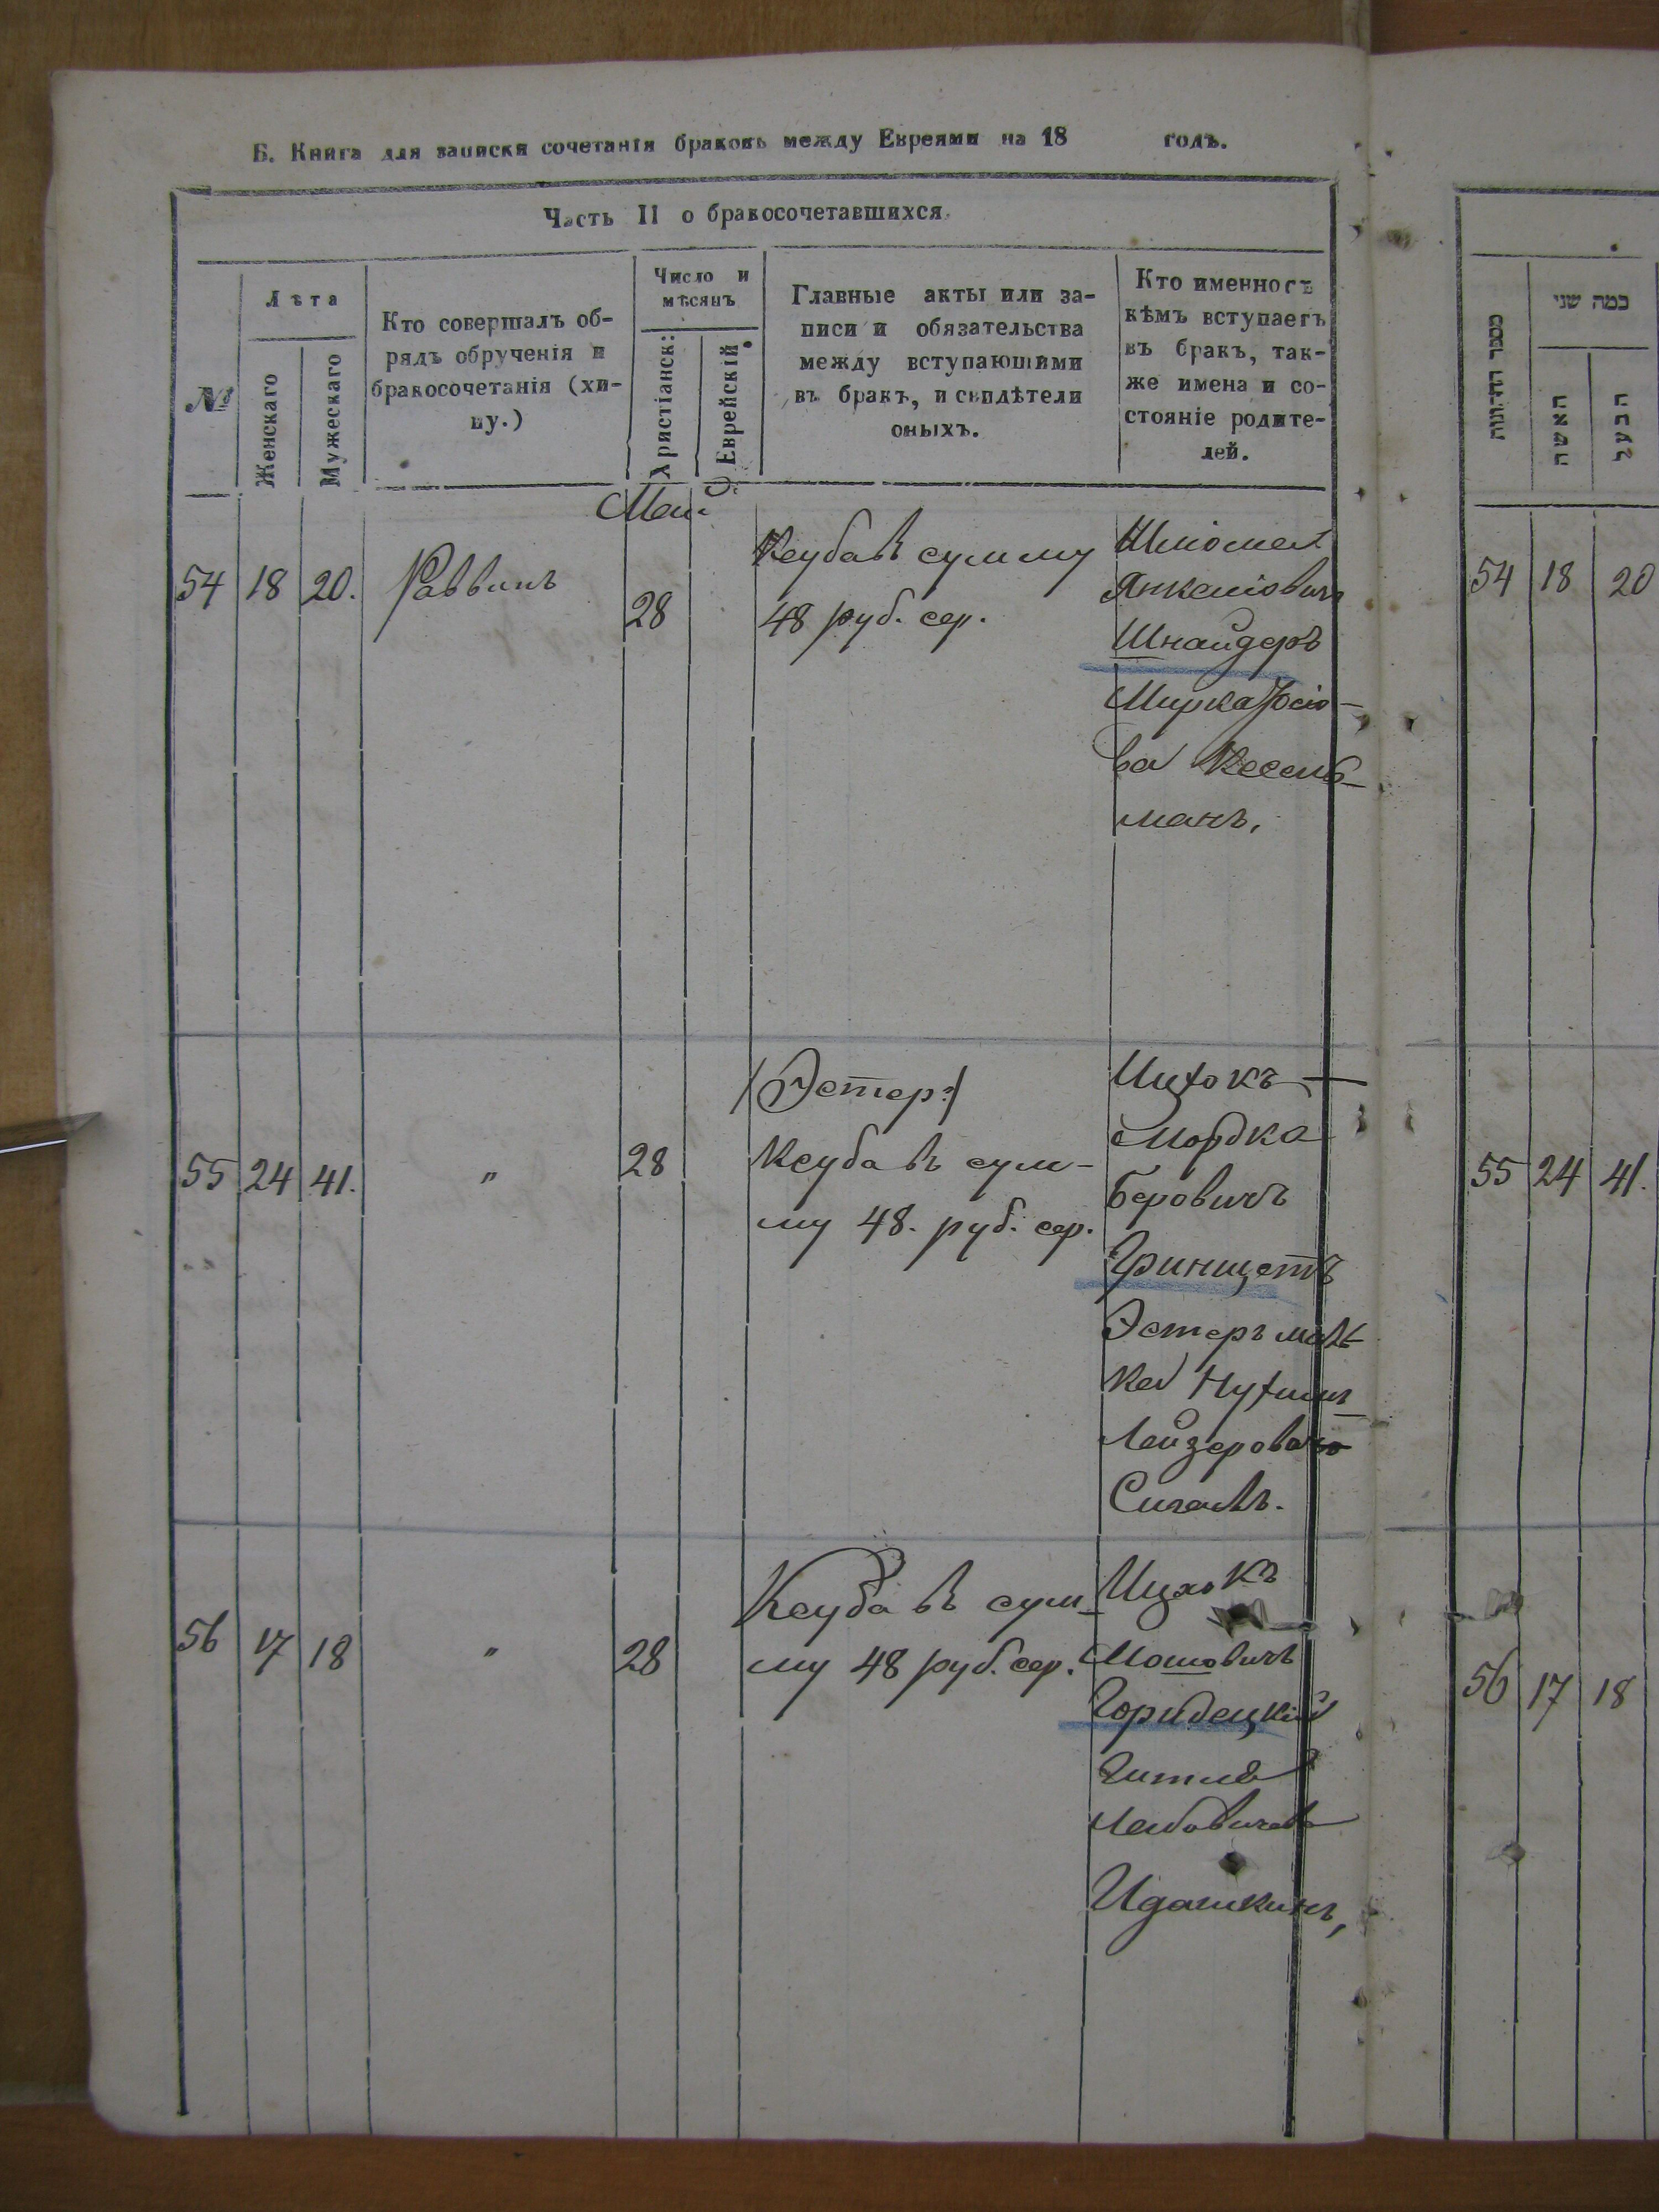 Б. Книга для записки сочетанія браковъ между Евреями на 18 годъ.
Часть II о бракосочетавшихся.
№
Лѣта
Женскаго
Мужескаго
Кто совершалъ об-
рядъ обрученія и
бракосочетанія (хи-
пу.)
Число и
мѣсяцъ
Христіанск:
Еврейскій
Главные акты или за-
писи и обязательства
между вступающими
въ бракъ, и свидѣтели
оныхъ.
Кто именно съ
кѣмъ вступаетъ
въ бракъ, так-
же имена и со-
стояніе родите-
лей.
Май
54 18 20. Раввинъ 28
Ксуба въ сумму
48 руб. сер.
Шлиома
Янкеліовичъ
Шнайдеръ
Мирка Іосіо-
ва Кесель-
манъ.
55 24 41. " 28
/Эстер:/
Ксуба въ сум-
му 48. руб. сер.
Ицхокъ
Мордка
Беровичъ
Гринщетъ
Эстеръ мал-
ка Нухим
Лейзерова
Сигалъ.
56 17 18 " 28
Ксуба въ сум-
му 48 руб. сер.
Ицхокъ
Мошовичъ
Горидецкій
Гитля
Лейбовичева
Идашкинъ,
מספר החתונות
כמה שני
האשה
הבעל
54 18 20
55 24 41.
56 17 18